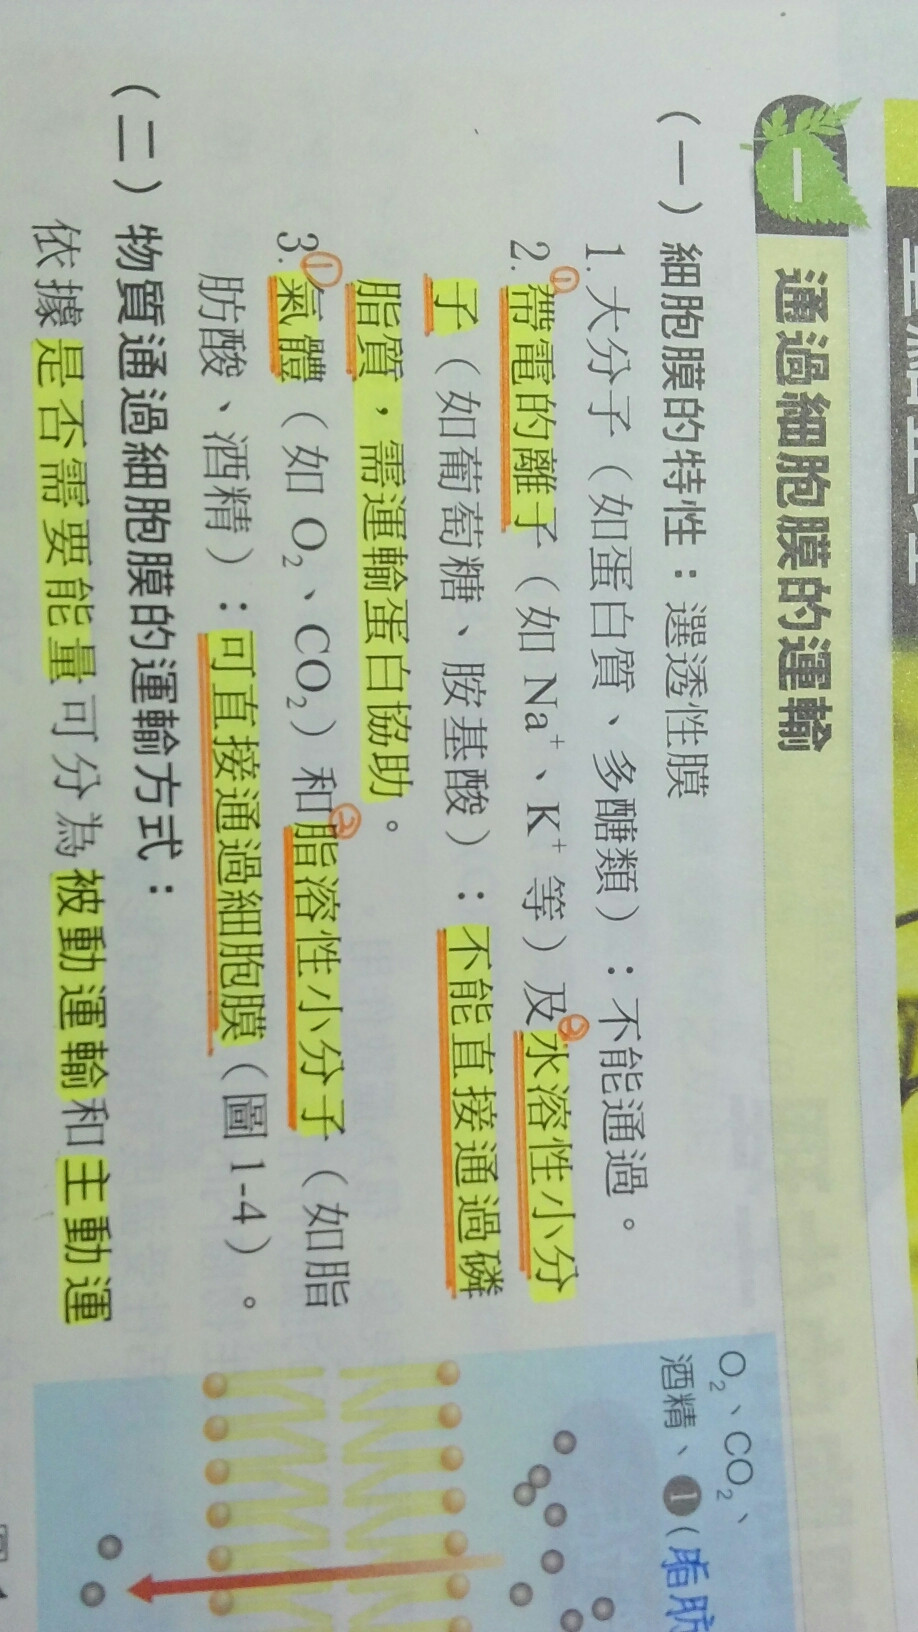 一 通過細胞膜的運輸
(一)細胞膜的特性：選透性膜
1. 大分子（如蛋白質、多醣類）：不能通過。
2. ①帶電的離子（如 Na⁺、K⁺ 等）及②水溶性小分
子（如葡萄糖、胺基酸）：不能直接通過磷
脂質，需運輸蛋白協助。
3. ①氣體（如 O₂、CO₂）和②脂溶性小分子（如脂
肪酸、酒精）：可直接通過細胞膜（圖 1-4）。
(二)物質通過細胞膜的運輸方式：
依據是否需要能量可分為被動運輸和主動運
O₂、CO₂、
酒精、❶(脂肪